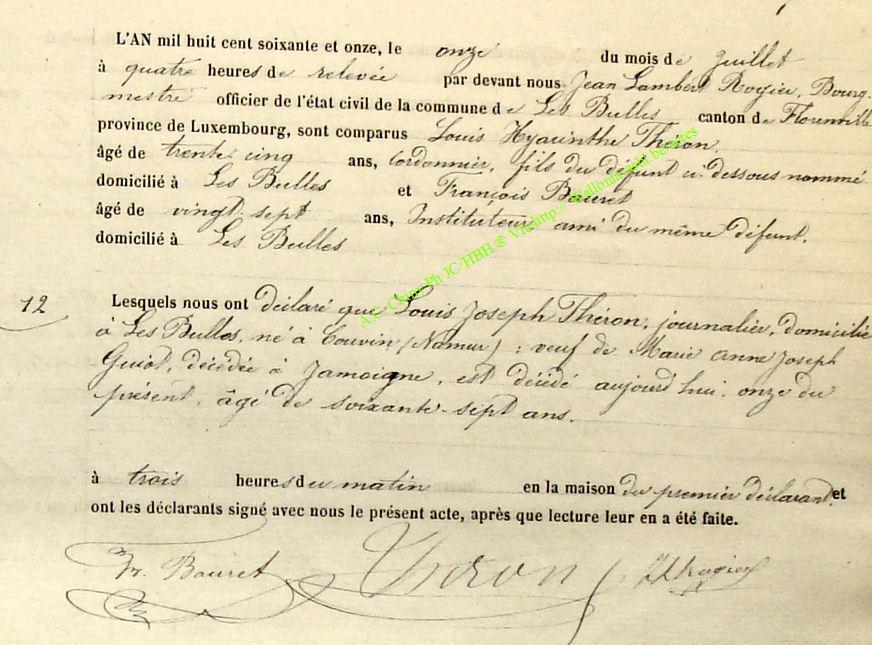 L'AN mil huit cent soixante et onze, le onze du mois de Juillet
à quatre heures de relevée par devant nous Jean Lambert Rogier, Bourg-
mestre officier de l'état civil de la commune de Les Bulles canton de Florenville
province de Luxembourg, sont comparus Louis Hyacinthe Théron,
âgé de trente cinq ans, Cordonnier, fils du défunt ci-dessous nommé
domicilié à Les Bulles et François Bauret
âgé de vingt-sept ans, Instituteur, ami du même défunt.
domicilié à Les Bulles
12
Lesquels nous ont déclaré que Louis Joseph Théron, journalier, domicilié
à Les Bulles, né à Couvin (Namur); veuf de Marie Anne Joseph
Guiot, décédée à Jamoigne, est décédé aujourd'hui, onze du
présent, âgé de soixante-sept ans.
à trois heures du matin en la maison du premier déclarant, et
ont les déclarants signé avec nous le présent acte, après que lecture leur en a été faite.
Fr. Bauret Théron Rogier